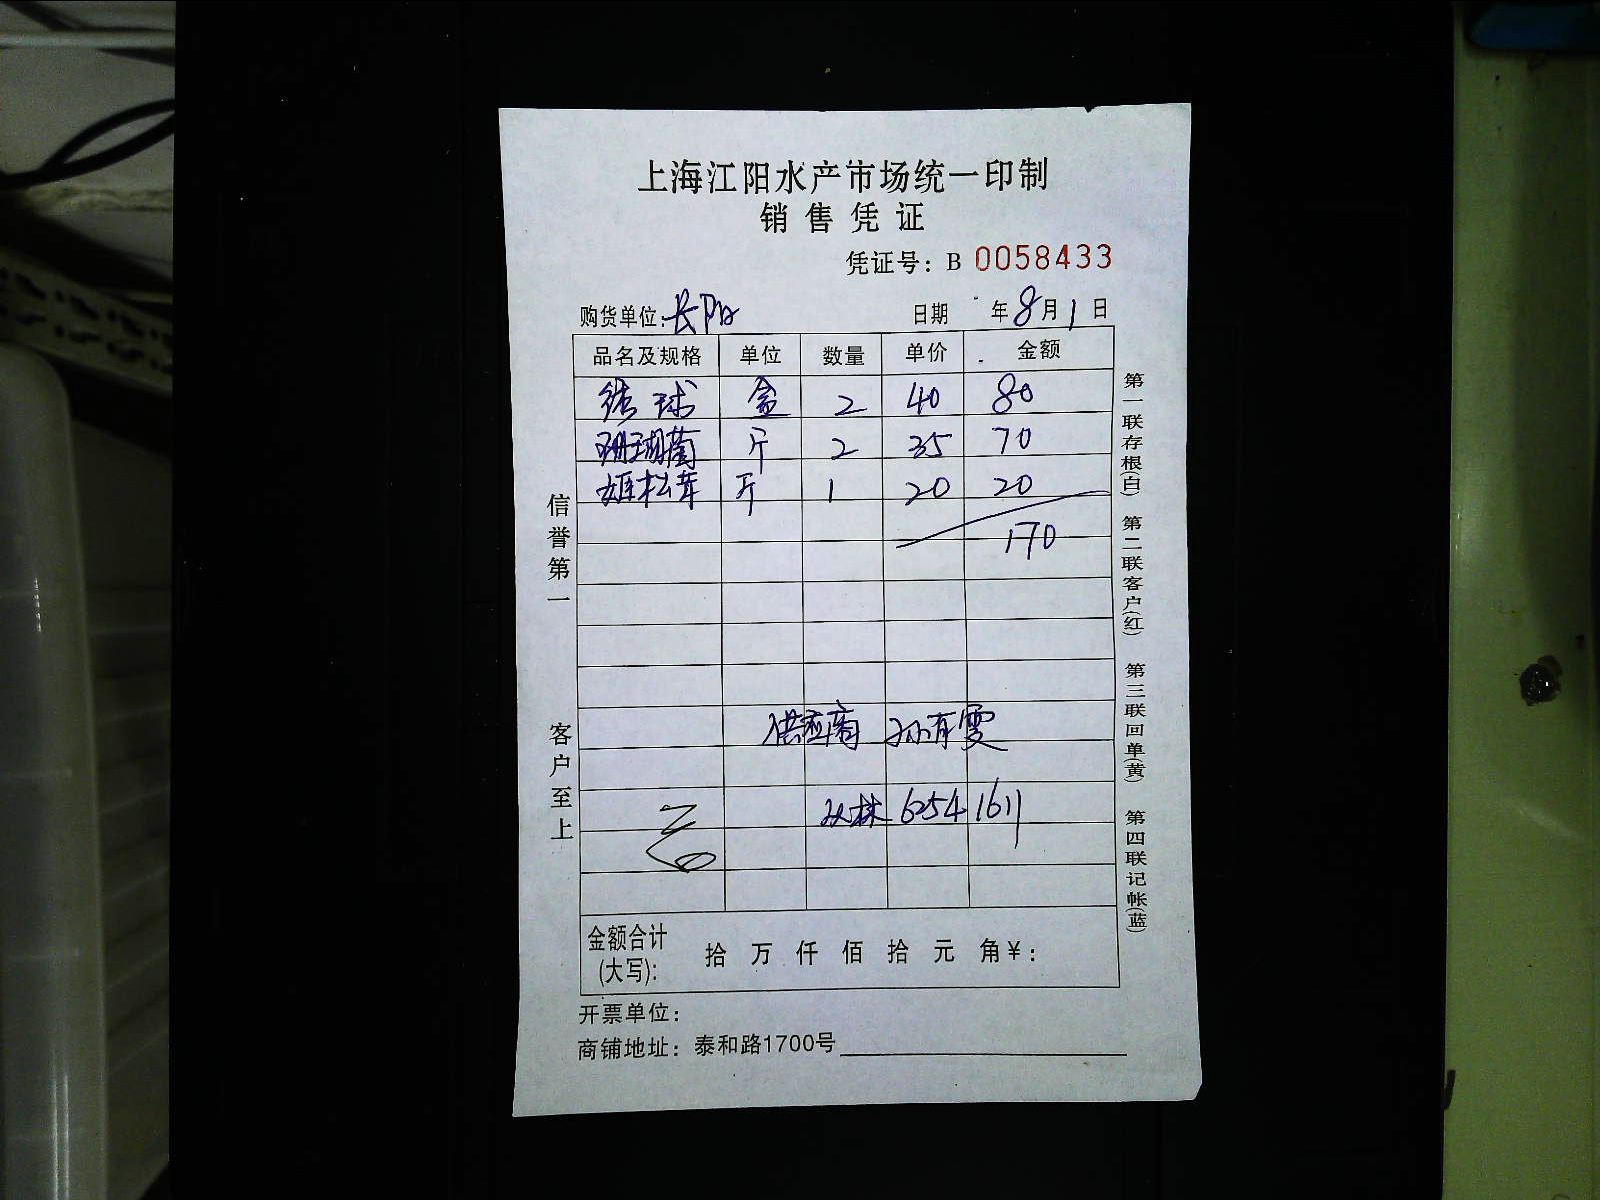 上海江阳水产市场统一印制
销售凭证
凭证号：B 0058433
购货单位：长阳 日期 年8月1日
品名及规格 单位 数量 单价 金额
球 盒 2 40 80
珊瑚菌 斤 2 35 70
姬松茸 斤 1 20 20
170
供应商 孙有雯
双林 62541611
金额合计 拾 万 仟 佰 拾 元 角 ¥：
(大写)：
开票单位：
商铺地址：泰和路1700号
信誉第一 客户至上
第一联存根(白) 第二联客户(红) 第三联回单(黄) 第四联记帐(蓝)